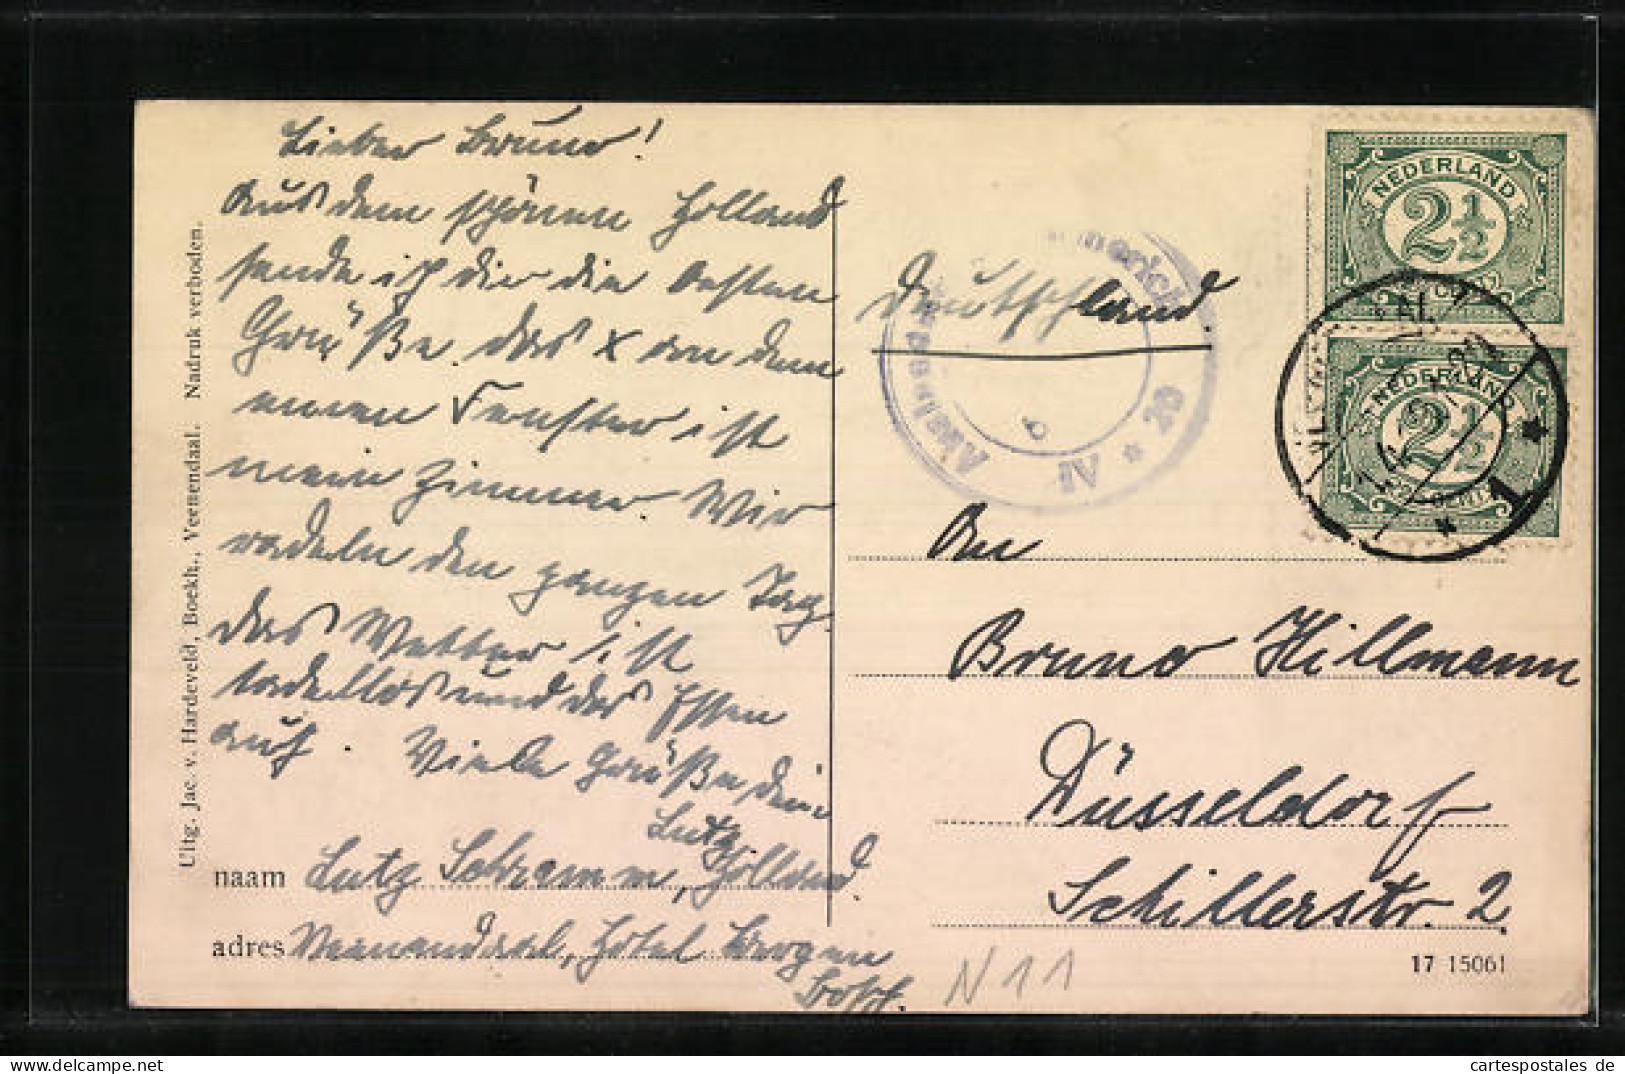 Lieber Bruno!
Aus dem schönen Holland
sende ich dir die besten
Grüße. Das x an dem
einen Fenster ist
mein Zimmer. Wir
radeln den ganzen Tag.
Das Wetter ist
tadellos und das Essen
auch. Viele Grüße dein
Lutz
naam Lutz Schramm, Holland.
adres Veenendaal, Hotel
Uitg. Jac. v. Hardeveld, Boekh., Veenendaal. Nadruk verboden.
NEDERLAND
2½
NEDERLAND
2½
1
Deutschland.
An
Bruno Hillmann
Düsseldorf
Schillerstr. 2
17 15061
N 11
cartespostales de